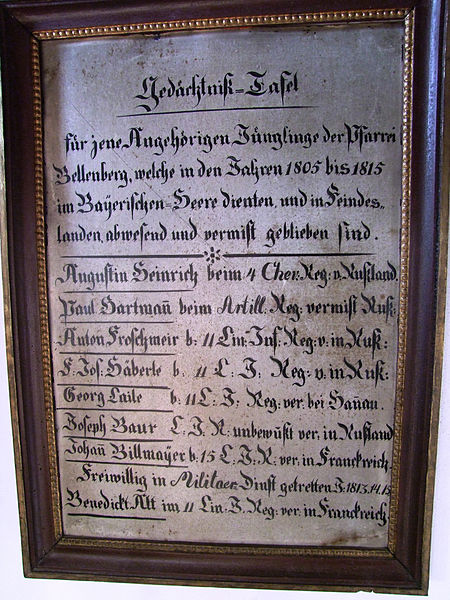 Gedächtniß=Tafel
für jene Angehörigen Jünglinge der Pfarrei
Bellenberg, welche in den Jahren 1805 bis 1815
im Bayerischen=Heere dienten, und in Feindes=
landen, abwesend und vermißt geblieben sind.
Augustin Heinrich beim 4 Chev: Reg: v. Rußland.
Paul Hartman̄ beim Artill. Reg: vermißt Ruß:
Anton Froschmeir b: 11 Lin: Inf: Reg: v: in Ruß:
F. Jos: Häberle b: 11 L: I: Reg: v: in Ruß:
Georg Laile b: 11 L: I: Reg: ver: bei Hanau.
Joseph Baur L: I: R: unbewußt ver: in Rußland
Johan̄ Billmayer b: 15 L: I: R: ver: in Franckreich:
Freiwillig in Militaer=Dinst getretten J: 1813, 14, 15
Benedickt Alt im 11 Lin: I: Reg: ver: in Franckreich.